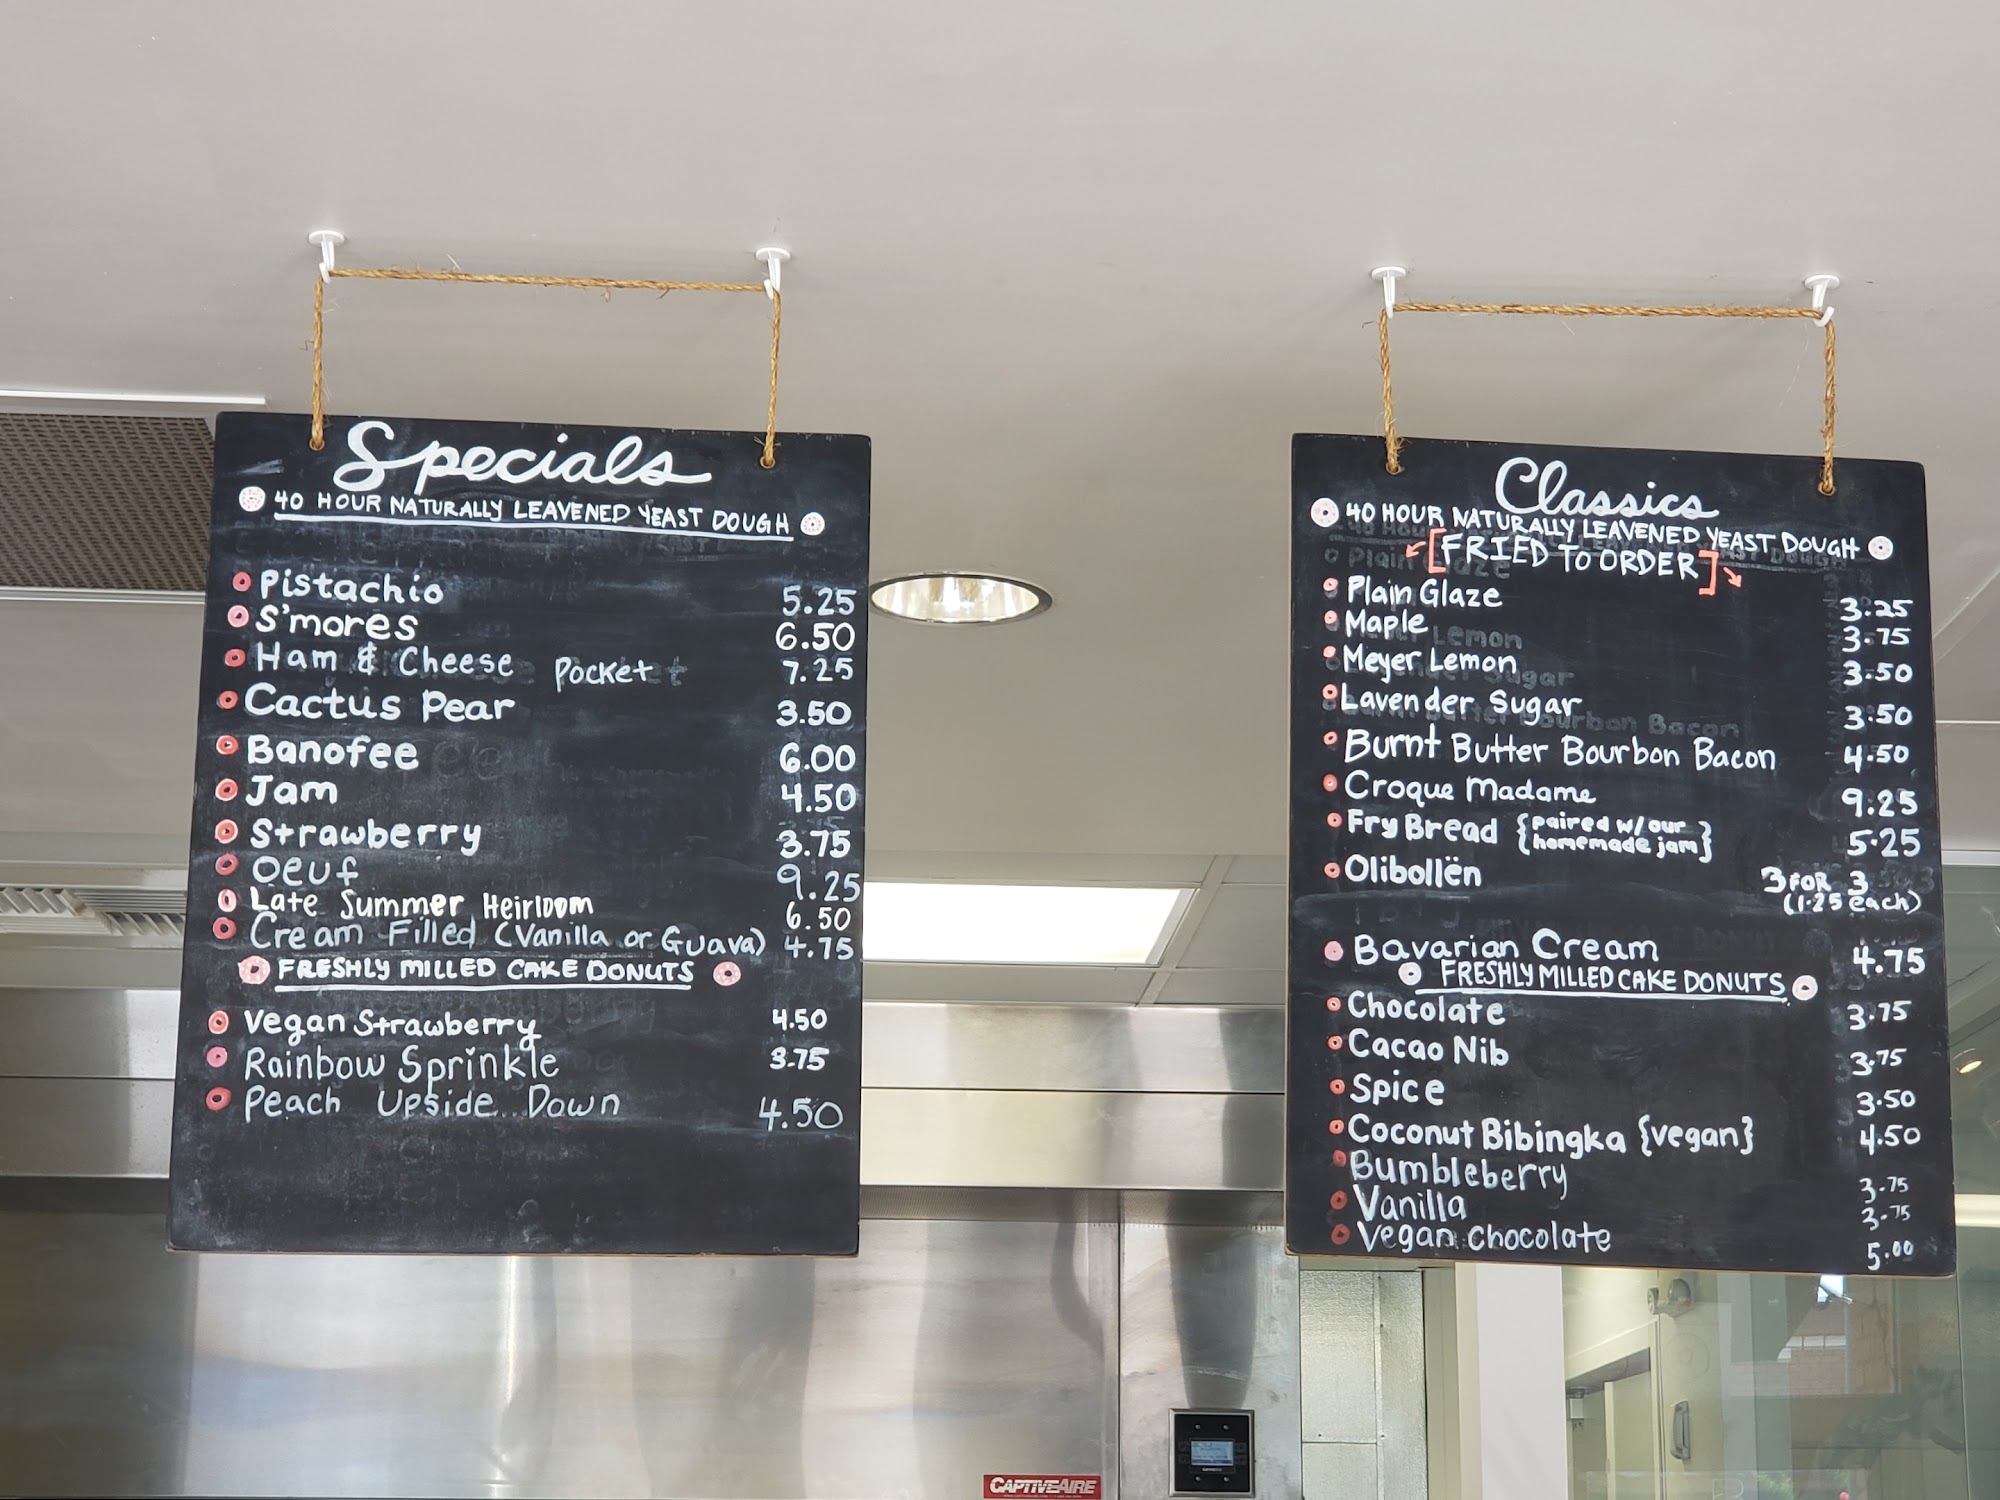 Specials
40 HOUR NATURALLY LEAVENED YEAST DOUGH
Pistachio 5.25
S'mores 6.50
Ham & Cheese Pocket 7.25
Cactus Pear 3.50
Banofee 6.00
Jam 4.50
Strawberry 3.75
Oeuf 9.25
Late Summer Heirloom 6.50
Cream Filled (Vanilla or Guava) 4.75
FRESHLY MILLED CAKE DONUTS
Vegan Strawberry 4.50
Rainbow Sprinkle 3.75
Peach Upside Down 4.50
Classics
40 HOUR NATURALLY LEAVENED YEAST DOUGH
[FRIED TO ORDER]
Plain Glaze 3.25
Maple 3.75
Meyer Lemon 3.50
Lavender Sugar 3.50
Burnt Butter Bourbon Bacon 4.50
Croque Madame 9.25
Fry Bread {paired w/our homemade jam} 5.25
Olibollën 3 FOR 3
(1.25 each)
Bavarian Cream 4.75
FRESHLY MILLED CAKE DONUTS
Chocolate 3.75
Cacao Nib 3.75
Spice 3.50
Coconut Bibingka {vegan} 4.50
Bumbleberry 3.75
Vanilla 3.75
Vegan Chocolate 5.00
CAPTIVEAIRE